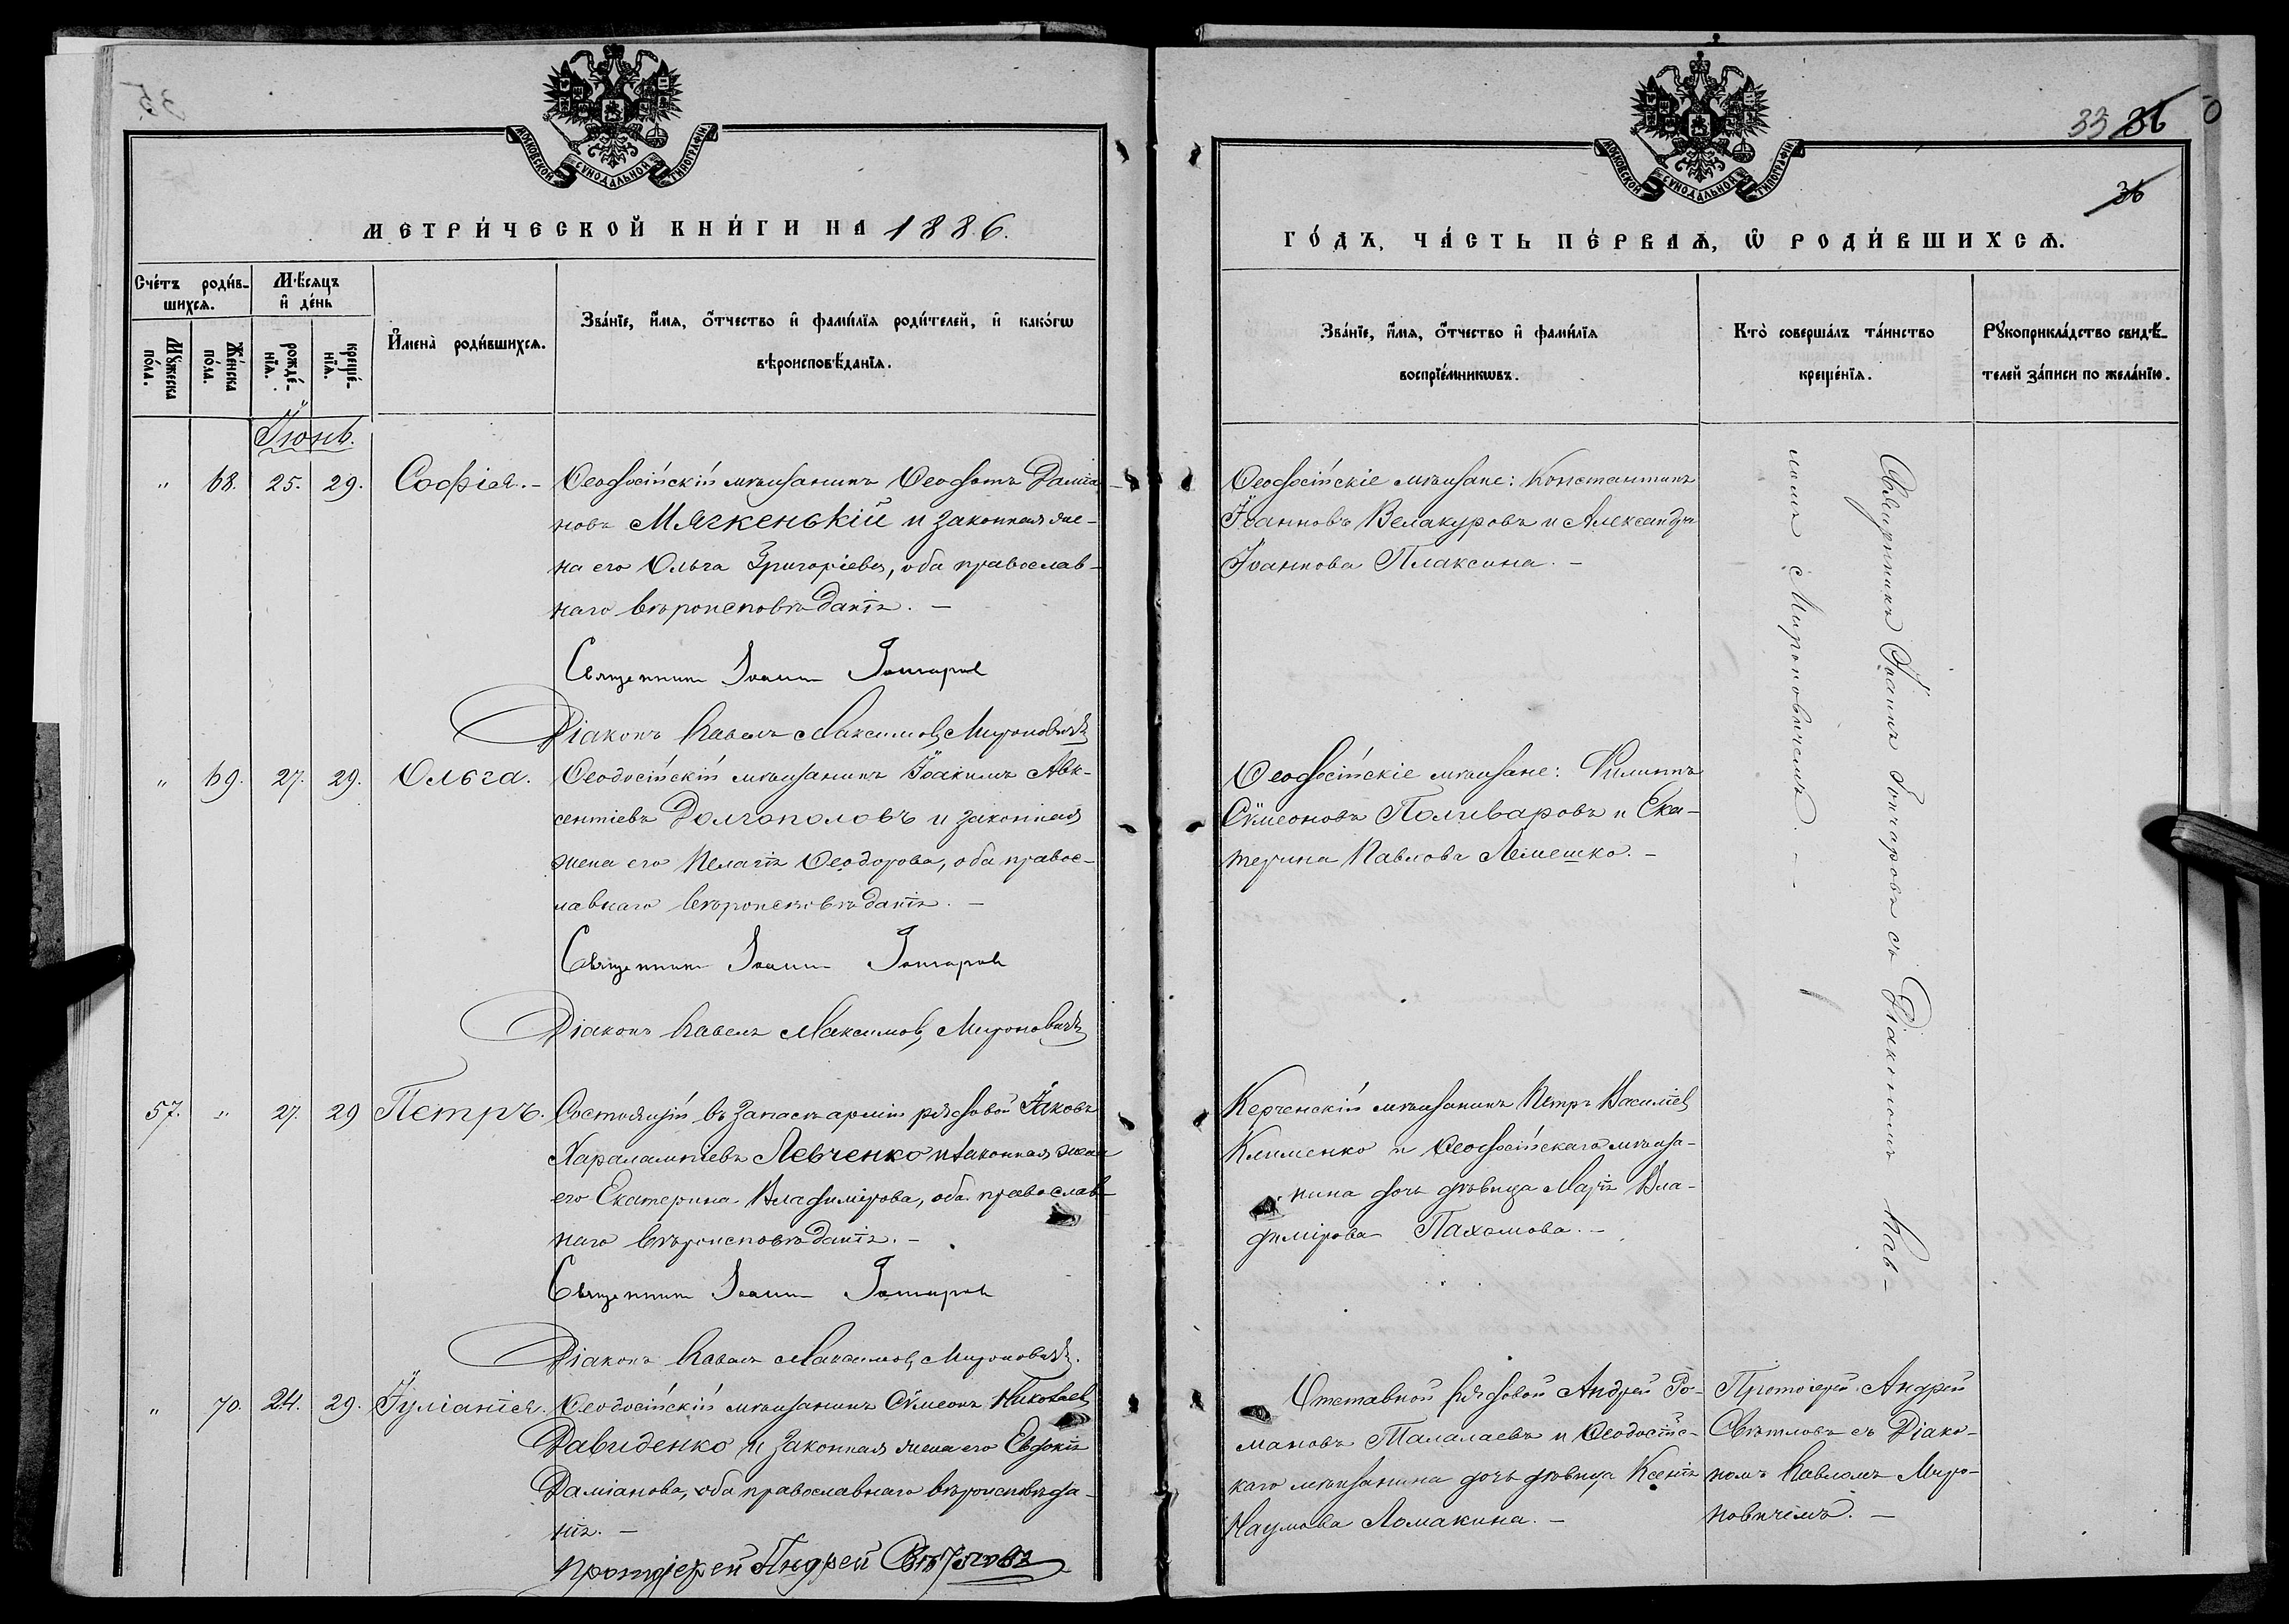 МОСКОВСКОЙ СѴНОДАЛЬНОЙ ТИПОГРАФІИ
МЕТРИ́ЧЕСКОЙ КНИ́ГИ НА 1886.
Сче́тъ роди́в-
шихся.
Мѣ́сяцъ
и҆ де́нь
Мꙋ́жеска
по́ла.
Же́нска
по́ла.
рожде́-
нїя.
креще́-
нїя.
И҆мена̀ роди́вшихся.
Зва́нїе, и҆́мя, ѻ҆́тчество и҆ фами́лїя роди́телей, и҆ како́гѡ
вѣроисповѣ́данїя.
Іюнь.
" 68. 25. 29. Софія. – Ѳеодосійскій мѣщанинъ Ѳеодотъ Даміа-
новъ Мягкенькій и законная же-
на его Ольга Григоріева, оба православ-
наго вѣроисповѣданія. –
Священникъ Іоаннъ Гончаровъ
Діаконъ Павелъ Максимов. Мироновичъ
" 69. 27. 29. Ольга. Ѳеодосійскій мѣщанинъ Іоакимъ Авк-
сентіевъ Долгополовъ и законная
жена его Пелагія Ѳеодорова, оба правос-
лавнаго вѣроисповѣданія. –
Священникъ Іоаннъ Гончаровъ
Діаконъ Павелъ Максимов. Мироновичъ
57. " 27. 29 Петръ. Состоящій въ запасѣ арміи рядовой Іаковъ
Харалампіевъ Левченко и законная жена
его Екатерина Владимірова, оба православ-
наго вѣроисповѣданія. –
Священникъ Іоаннъ Гончаровъ
Діаконъ Павелъ Максимов. Мироновичъ.
" 70. 24. 29. Іуліанія. Ѳеодосійскій мѣщанинъ Сѵмеонъ Николаев.
Давиденко и законная жена его Евдокія
Даміанова, оба православнаго вѣроисповѣда-
нія. –
Протоіерей Андрей Свѣтловъ
33 36
36
МОСКОВСКОЙ СѴНОДАЛЬНОЙ ТИПОГРАФІИ
ГО́ДЪ, ЧА́СТЬ ПЕ́РВАЯ, Ѡ҆ РОДИ́ВШИХСЯ.
Зва́нїе, и҆́мя, ѻ҆́тчество и҆ фами́лїя
воспрїе́мникѡвъ.
Кто̀ соверша́лъ та́инство
креще́нїя.
Рꙋкоприкла́дство свидѣ́-
телей за́писи по жела́нїю.
Ѳеодосійскіе мѣщане: Константинъ
Іоанновъ Велакуровъ и Александра
Іоаннова Плаксина. –
Ѳеодосійскіе мѣщане: Филиппъ
Сѵмеоновъ Поливаровъ и Ека-
терина Павлова Лемешко. –
Керченскій мѣщанинъ Петръ Василіев.
Клименко и Ѳеодосійскаго мѣща-
нина дочь дѣвица Марія Вла-
димірова Пахомова. –
Священникъ Іоаннъ Гончаровъ съ Діакономъ Пав-
ломъ Мироновичемъ. –
Отставной рядовой Андрей Ро-
мановъ Талалаевъ и Ѳеодосійс-
каго мѣщанина дочь дѣвица Ксенія
Наумова Ломакина. –
Протоіерей Андрей
Свѣтловъ съ Діако-
номъ Павломъ Миро-
новичемъ. –